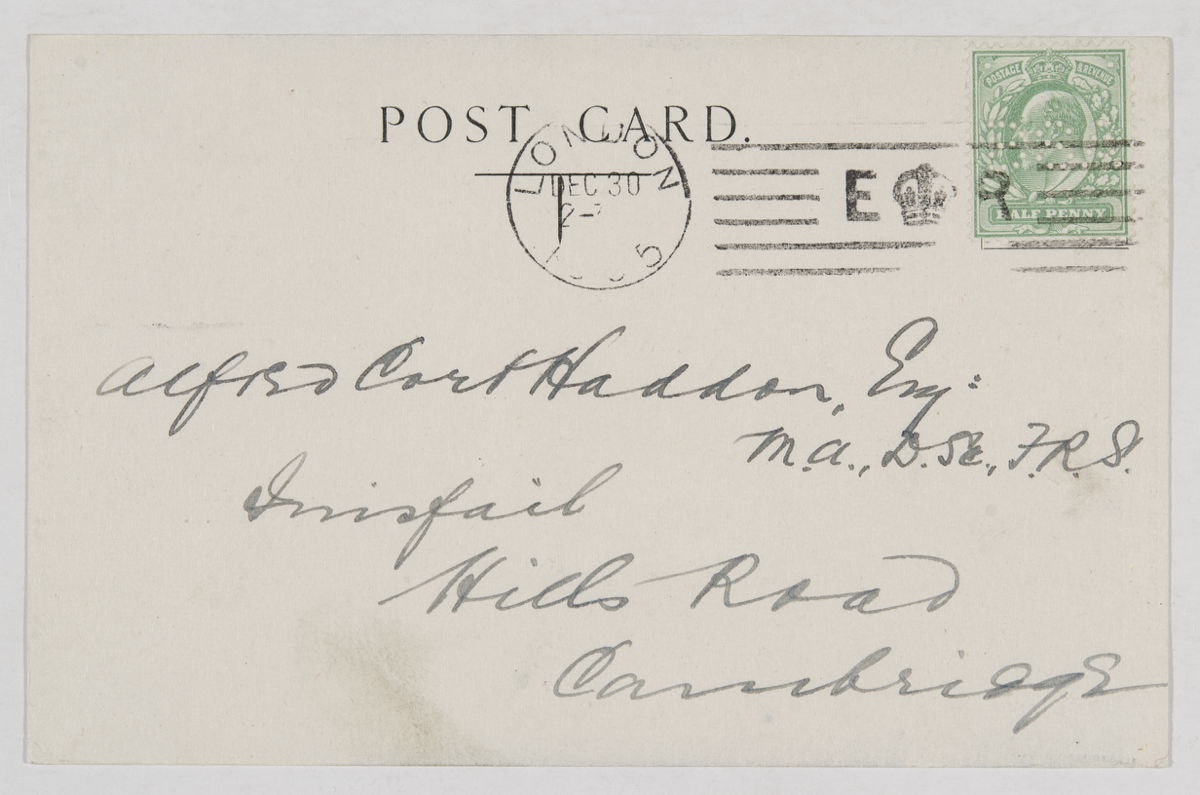 POST CARD.
LONDON
DEC 30
5
E R
POSTAGE & REVENUE
HALF PENNY
Alfred Cort Haddon, Esq:
M.A., D.Sc., F.R.S.
Inisfail
Hills Road
Cambridge